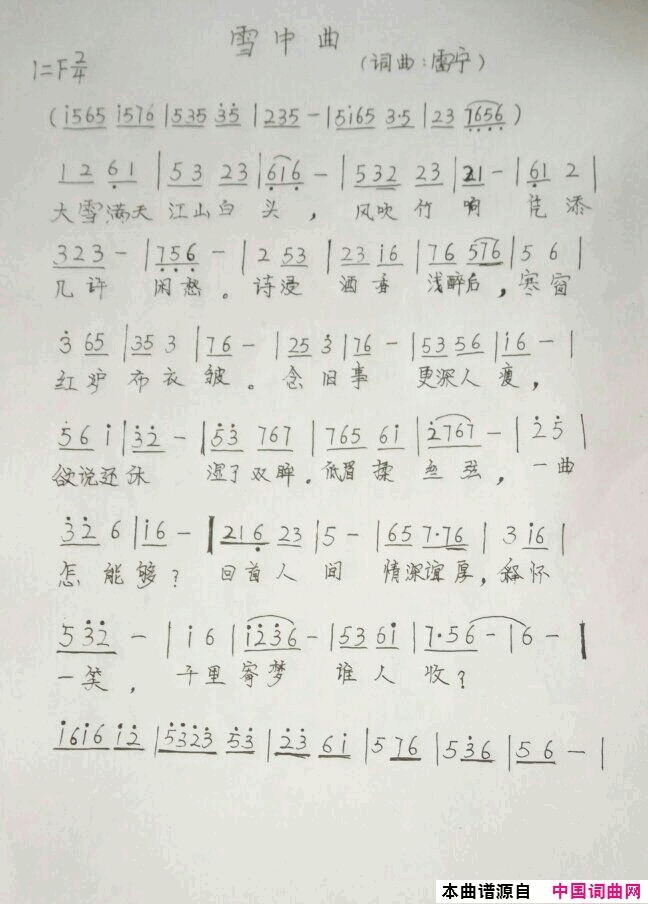 雪中曲
1=F 2/4
(词曲:雷宁)
(i565 i576 | 535 35 | 235 - | 5i65 3·5 | 23 7656)
12 61 | 53 23 | 616 - | 532 23 | 21 - | 61 2 |
大雪满天 江山白头, 风吹竹 啊 凭添
323 - | 756 - | 2 53 | 23 i6 | 76 576 | 5 6 |
几许 闲愁。诗漫 酒香 浅醉后,寒窗
3 65 | 35 3 | 76 - | 25 3 | 76 - | 53 56 | i6 - |
红炉 布衣 皱。念旧事 更深人瘦,
56 i | 32 - | 53 767 | 765 6i | 2767 - | 2 5 |
欲说还休 湿了双眸。低眉 弦,一曲
32 6 | i6 - | 216 23 | 5 - | 65 7·76 | 3 i6 |
怎能够? 回首人间 情深谊厚,释怀
532 - | i 6 | i236 - | 53 6i | 7·56 - | 6 - |
一笑, 千里寄梦 谁人收?
i6i6 i2 | 5323 53 | 23 6i | 5 76 | 5 36 | 56 - |
本曲谱源自 中国词曲网